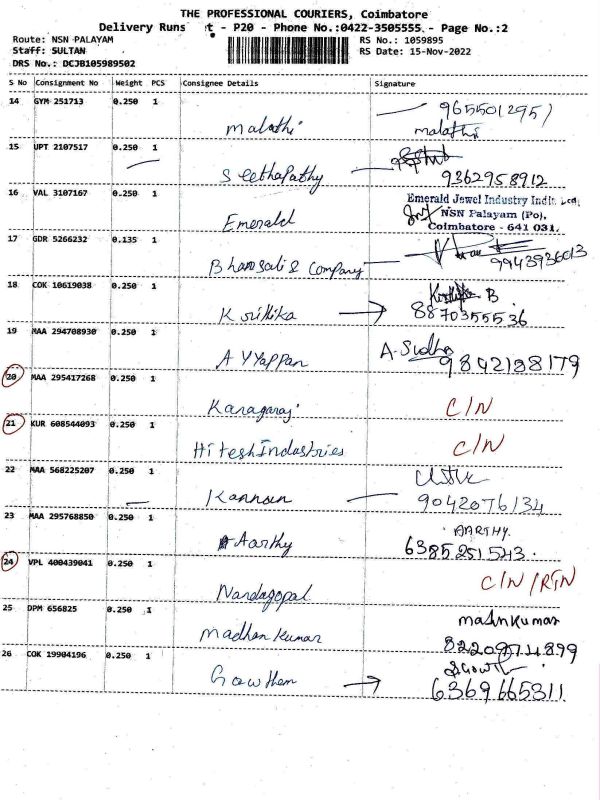 THE PROFESSIONAL COURIERS, Coimbatore
Delivery Runs t - P20 - Phone No.:0422-3505555 - Page No.:2
Route: NSN PALAYAM RS No.: 1059895
Staff: SULTAN RS Date: 15-Nov-2022
DRS No.: DCJB105989502
S No Consignment No Weight PCS Consignee Details Signature
14 GYM 251713 0.250 1 9655012957
Malathi malathi
15 UPT 2107517 0.250 1
Seethapathy 9362958912
16 VAL 3107167 0.250 1 Emerald Jewel Industry India Ltd,
NSN Palayam (Po),
Emerald Coimbatore - 641 031.
17 GDR 5266232 0.135 1
Bhansali & Company 9943936013
18 COK 10619038 0.250 1 B
Krithika 8870355536
19 MAA 294708930 0.250 1 A. Sudha
AYYappan 9842188179
20 MAA 295417268 0.250 1
Kanagaraj C/N
21 KUR 608544093 0.250 1
Hitesh Industries C/N
22 MAA 568225207 0.250 1
Kannan 9042076134
23 MAA 295768850 0.250 1 AARTHY.
Aarthy 6385251543.
24 VPL 400439041 0.250 1
Nandagopal C/N /RTN
25 DPM 656825 0.250 1 Madhnkumar
Madhan Kumar 8220974899
26 COK 19904196 0.250 1
Gowthem 6369665311